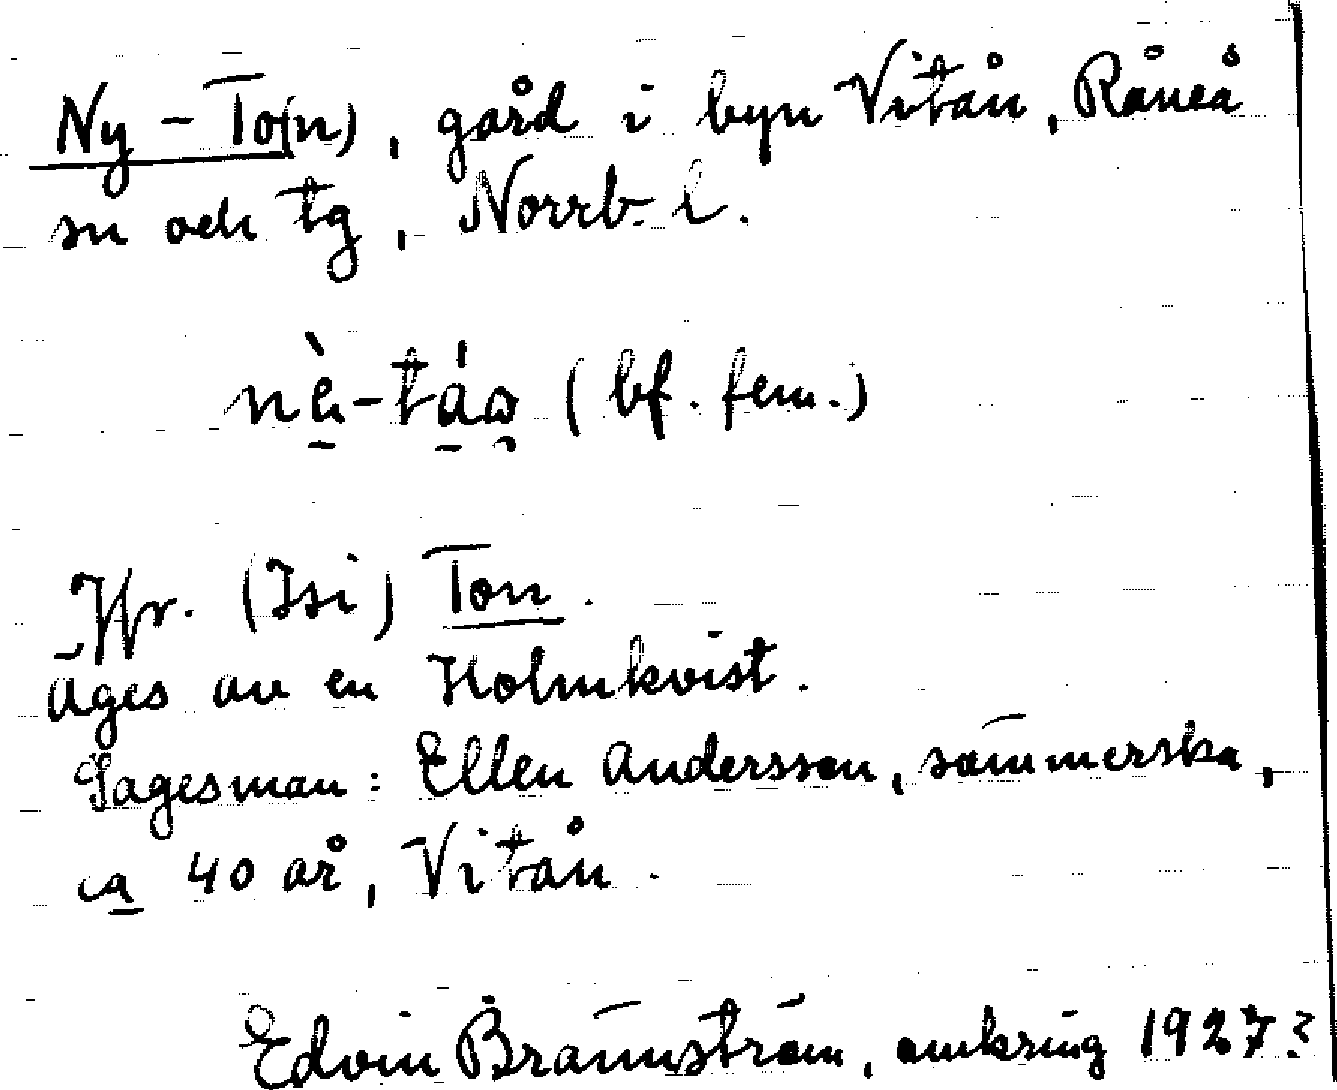 Ny-To(n), gård i byn Vitån, Råneå
sn och tg, Norrb. l.
(bf. fem.)
Jfr. (Isi) Ton.
Äges av en Holmkvist.
Sagesman: Ellen Andersson, sömmerska,
ca 40 år, Vitån.
Edvin Brännström, omkring 1927?